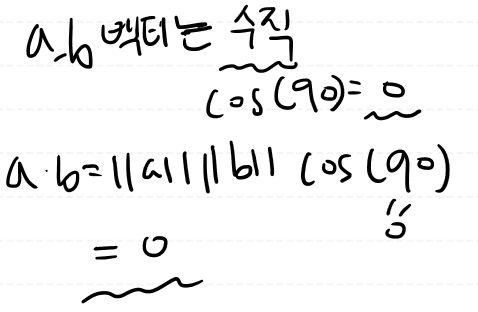 a,b 벡터는 수직
cos(90)=0
a·b=||a|| ||b|| cos(90)
"
0
= 0